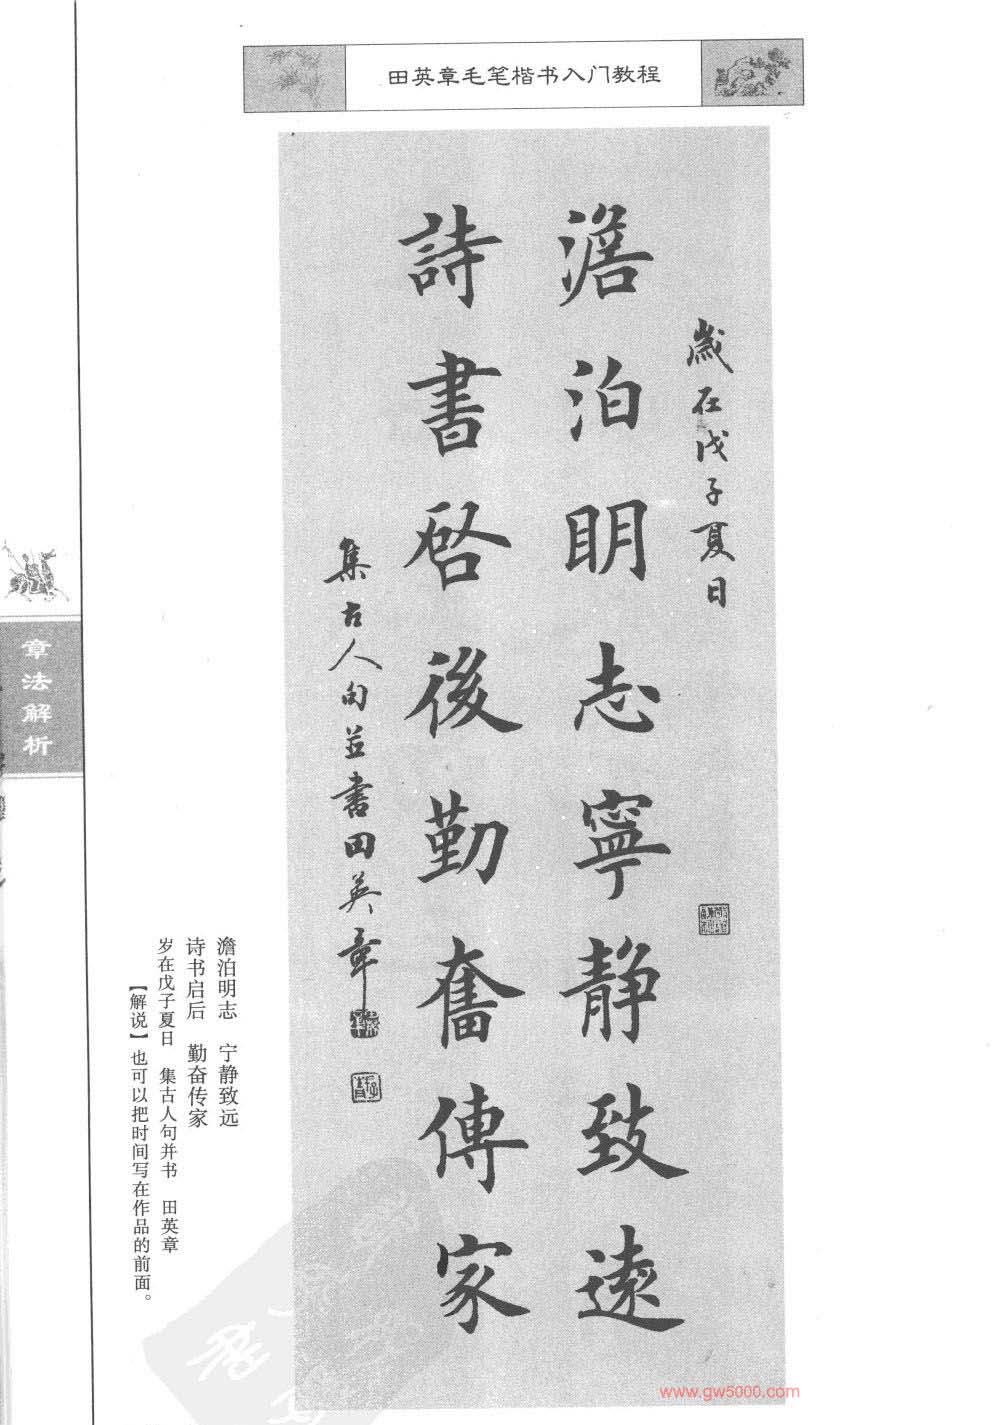 田英章毛笔楷书入门教程
歲在戊子夏日
澹泊明志寧静致遠
詩書啓後勤奮傳家
集古人句並書田英章
章法解析
澹泊明志 宁静致远
诗书启后 勤奋传家
岁在戊子夏日 集古人句并书 田英章
【解说】也可以把时间写在作品的前面。
www.gw5000.com